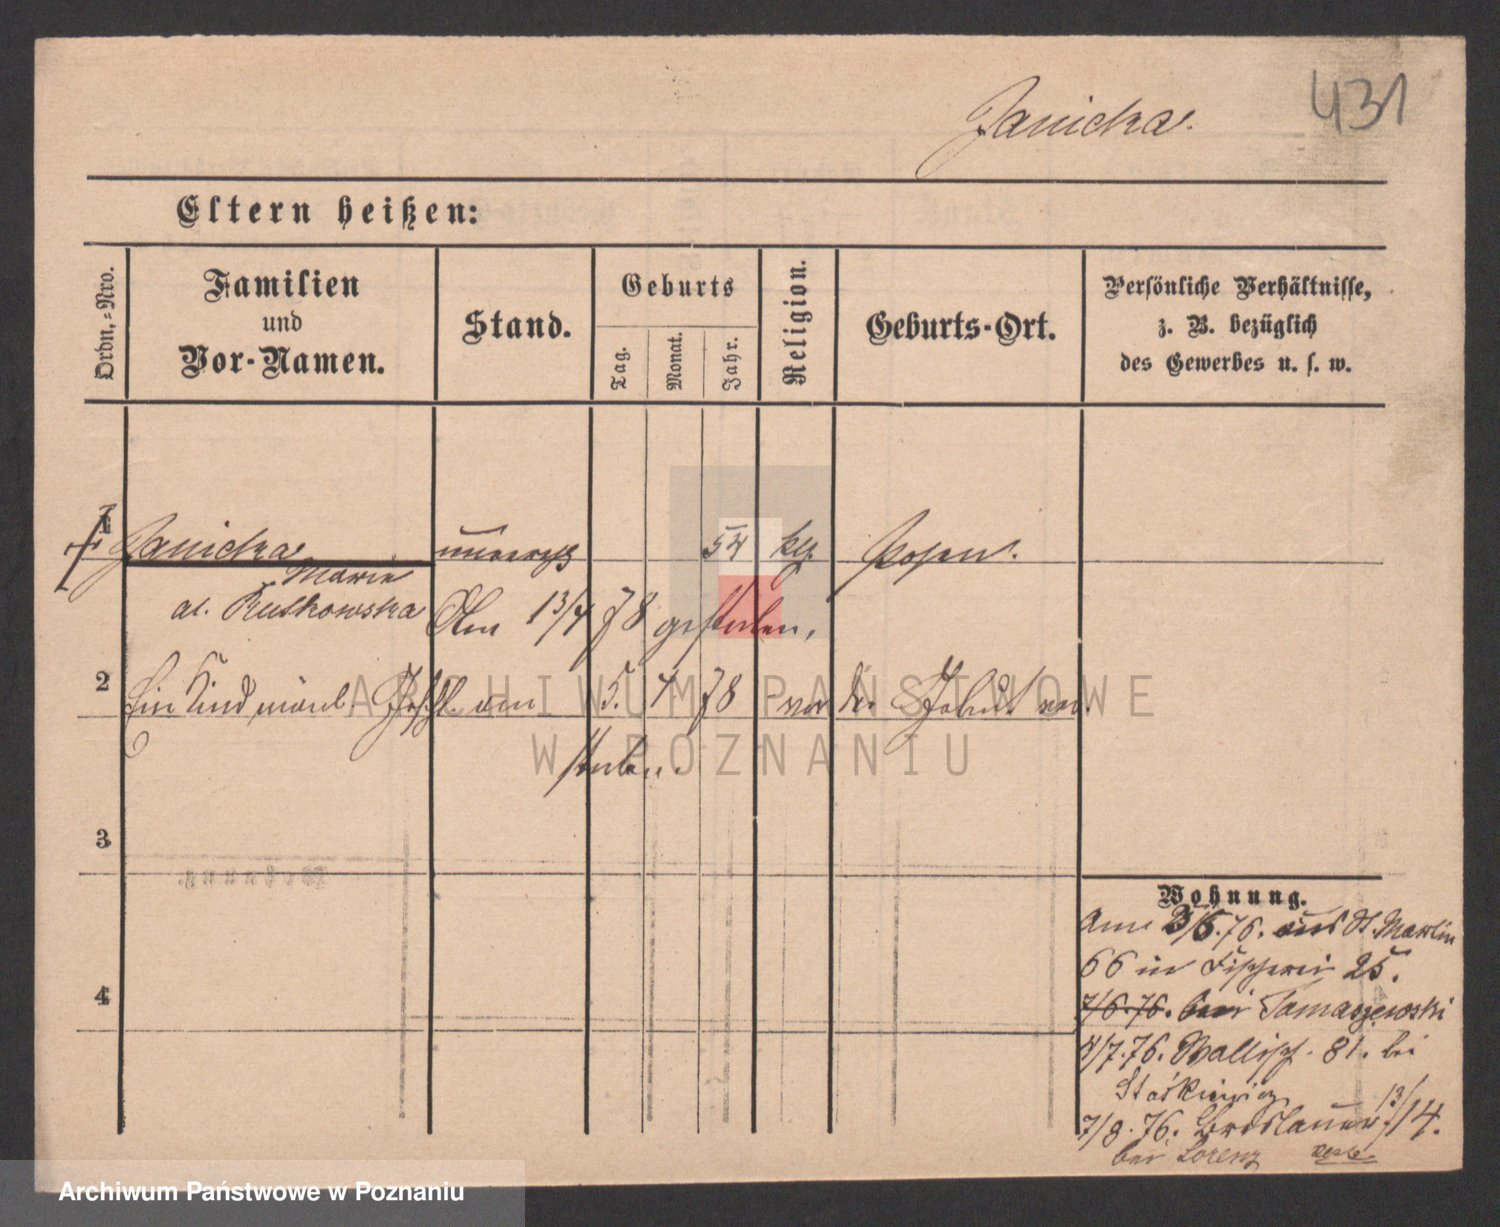 431
Janicka.
Eltern heißen:
Ordn.=Nro.
Familien
und
Vor-Namen.
Stand.
Geburts
Tag.
Monat.
Jahr.
Religion.
Geburts-Ort.
Persönliche Verhältnisse,
z. B. bezüglich
des Gewerbes u. s. w.
1
Janicka unvereh 54 Posen.
Marie
al. Rutkowska Am 13/4 78 gestorben,
2 Ein Kind männl. Geschl. am 5. 4 78 vor der Geburt
storben.
3
4
Wohnung.
/6.76. aus St. Martin
66 in Fischerei 25.
7/6.76. bei Tomaszewski
4/7.76. Wallisch. 81. bei
Staśkiewicz
7/8.76. Breslauer 13/14.
bei Lorenz
ARCHIWUM PAŃSTWOWE
W POZNANIU
Archiwum Państwowe w Poznaniu